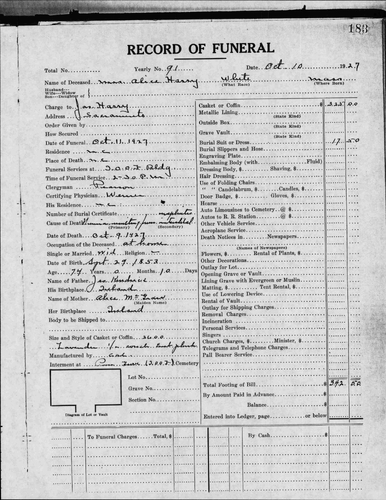 183
RECORD OF FUNERAL
Total No. Yearly No. 91 Date Oct 10 1927
Name of Deceased Mrs. Alice Harry White
(What Race) (Where Born)
Husband—
Wife—Widow
Son—Daughter of
Charge to Jas Harry
Address Sacramento
Order Given by
How Secured
Date of Funeral Oct. 11, 1927
Place of Death N.C.
Funeral Services at I.O.O.F. Bldg
Time of Service 2-30 P.M.
Clergyman Pierson
Certifying Physician
His Residence N.C.
Number of Burial Certificate
Cause of Death
(Primary) (Secondary)
Date of Death Oct 9, 1927
Occupation of the Deceased at home
Single or Married Wid. Religion
Date of Birth Sept 29, 1853
Age 74 Years 0 Months 10 Days
Name of Father Jas
His Birthplace Ireland
Name of Mother Alice
(Maiden Name)
Her Birthplace Ireland
Body to be Shipped to
Size and Style of Casket or Coffin
Lavender plush
Manufactured by
Interment at (I.O.O.F.) Cemetery
Lot No.
Grave No.
Section No.
Diagram of Lot or Vault
Casket or Coffin $ 325 00
Metallic Lining
(State Kind)
Outside Box
(State Kind)
Grave Vault
(State Kind)
Burial Suit or Dress 17 50
Burial Slippers and Hose
Engraving Plate
Embalming Body (with Fluid)
Dressing Body, $ Shaving, $
Hair Dressing
Use of Folding Chairs
" " Candelabrum, $ Candles, $
Door Badge, $ Gloves, $
Hearse
Auto Limousines to Cemetery @ $
Autos to R. R. Station @ $
Other Vehicle Service
Aeroplane Service
Death Notices in Newspapers
(Names of Newspapers)
Flowers, $ Rental of Plants, $
Other Decorations
Outlay for Lot
Opening Grave or Vault
Lining Grave with Evergreen or Muslin
Matting, $ Tent Rental, $
Use of Lowering Device
Rental of Vault
Outlay for Shipping Charges
Removal Charges
Incineration
Personal Services
Singers
Church Charges, $ Minister, $
Telegrams and Telephone Charges
Pall Bearer Service
Total Footing of Bill $ 342 50
By Amount Paid in Advance
Balance
Entered into Ledger, page or below
To Funeral Charges Total, $ By Cash $